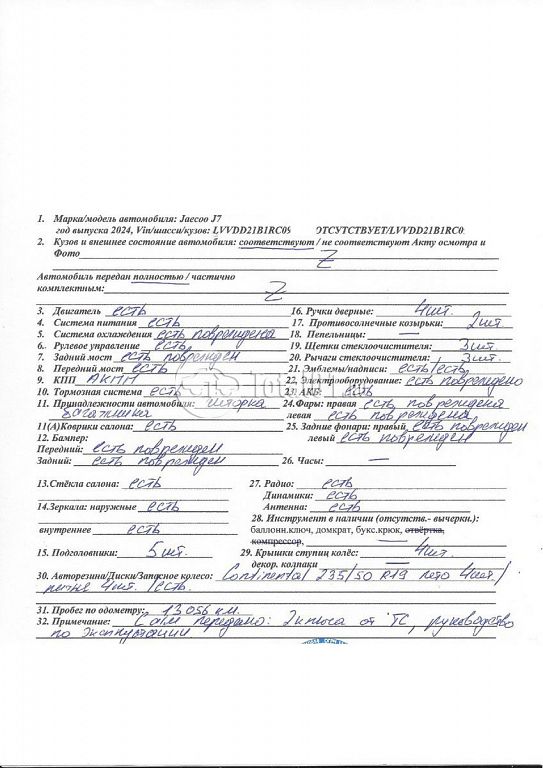 1. Марка/модель автомобиля: Jaecoo J7
год выпуска 2024, Vin/шасси/кузов: LVVDD21B1RC09 ОТСУТСТВУЕТ/LVVDD21B1RC0
2. Кузов и внешнее состояние автомобиля: соответствуют / не соответствуют Акту осмотра и
Фото Z
Автомобиль передан полностью / частично
комплектным: Z
3. Двигатель есть 16. Ручки дверные: 4 шт.
4. Система питания есть 17. Противосолнечные козырьки: 2 шт
5. Система охлаждения есть повреждена 18. Пепельницы: —
6. Рулевое управление есть 19. Щетки стеклоочистителя: 3 шт.
7. Задний мост есть поврежден 20. Рычаги стеклоочистителя: 3 шт.
8. Передний мост есть 21. Эмблемы/надписи: есть/есть
9. КПП АКПП 22. Электрооборудование: есть повреждено
10. Тормозная система есть 23. АКБ: есть
11. Принадлежности автомобиля: шторка 24.Фары: правая есть повреждена
багажника левая есть повреждена
11(А)Коврики салона: есть 25. Задние фонари: правый есть поврежден
12. Бампер: левый есть поврежден
Передний: есть поврежден
Задний: есть поврежден 26. Часы: —
13.Стёкла салона: есть 27. Радио: есть
Динамики: есть
14.Зеркала: наружные есть Антенна: есть
28. Инструмент в наличии (отсутств.- вычеркн.):
внутреннее есть баллонн.ключ, домкрат, букс.крюк, отвёртка,
компрессор, —
15. Подголовники: 5 шт. 29. Крышки ступиц колёс: 4 шт.
декор. колпаки —
30. Авторезина/Диски/Запасное колесо: Continental 235/50 R19 лето 4 шт/
4 шт. /есть.
31. Пробег по одометру: 13 056 км.
32. Примечание: С а/м передано: 2 ключа от ТС, руководство
по эксплуатации